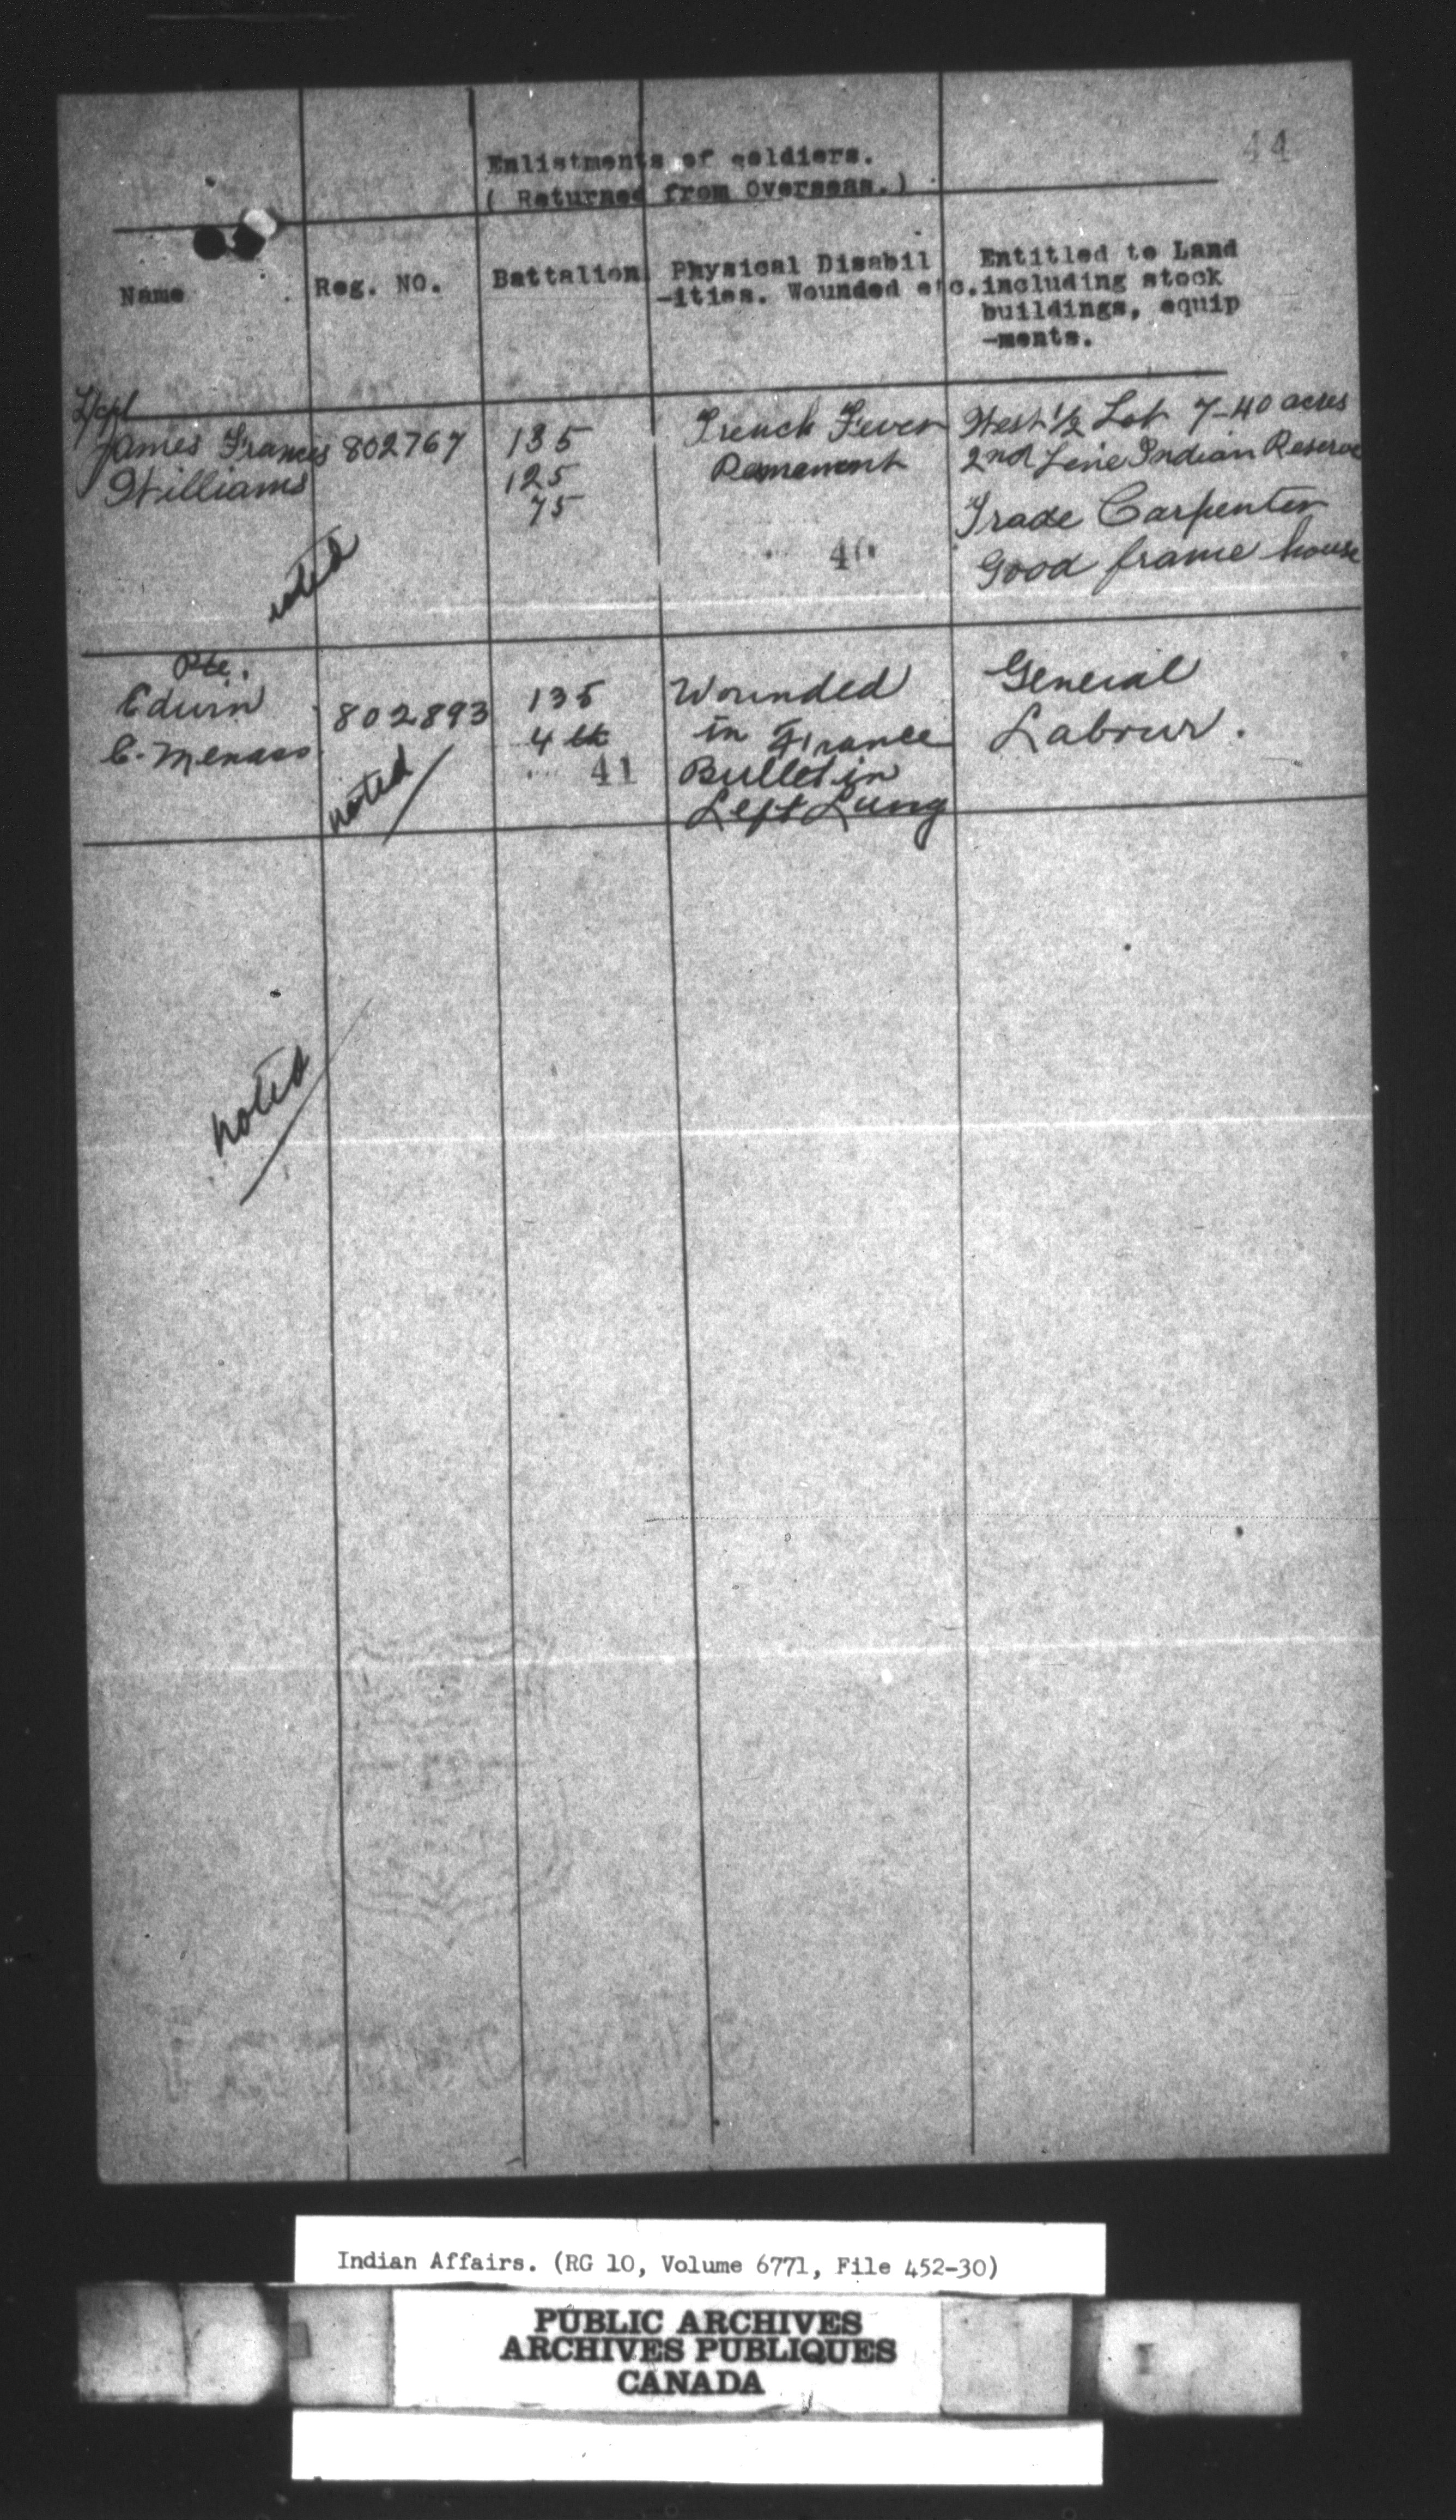 44
Enlistments of soldiers.
( Returned from Overseas.)
Name
Reg. NO.
Battalion
Physical Disabil
-ities. Wounded etc.
Entitled to Land
including stock
buildings, equip
-ments.
L/cpl
James Francis
Williams
802767
135
125
75
Trench Fever
Permanent
40
West 1/2 Lot 7-40 acres
2nd Line Indian Reserve
Trade Carpenter
Good frame house
noted
Pte.
Edwin
C. Menass
802893
noted
135
4th
41
Wounded
in France
Bullet in
Left Lung
General
Labour.
noted
Indian Affairs. (RG 10, Volume 6771, File 452-30)
PUBLIC ARCHIVES
ARCHIVES PUBLIQUES
CANADA